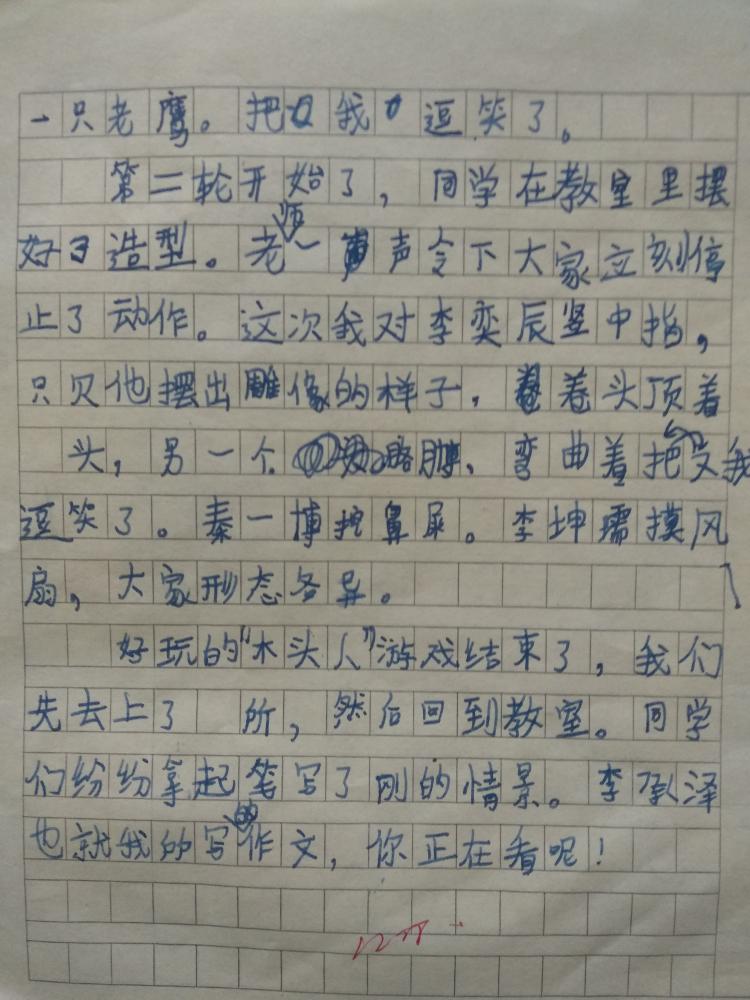 一只老鹰。把我逗笑了。
第二轮开始了，同学在教室里摆
好了造型。老师一声令下大家立刻停
止了动作。这次我对李奕辰竖中指，
只见他摆出雕像的样子，卷头顶着
头，另一个胳膊、弯曲着把又我
逗笑了。秦一博挖鼻屎。李坤孺摸风
扇，大家形态各异。
好玩的“木头人”游戏结束了，我们
先去上了 所，然后回到教室。同学
们纷纷拿起笔写了刚的情景。李承泽
也就我的写的作文，你正在看呢！